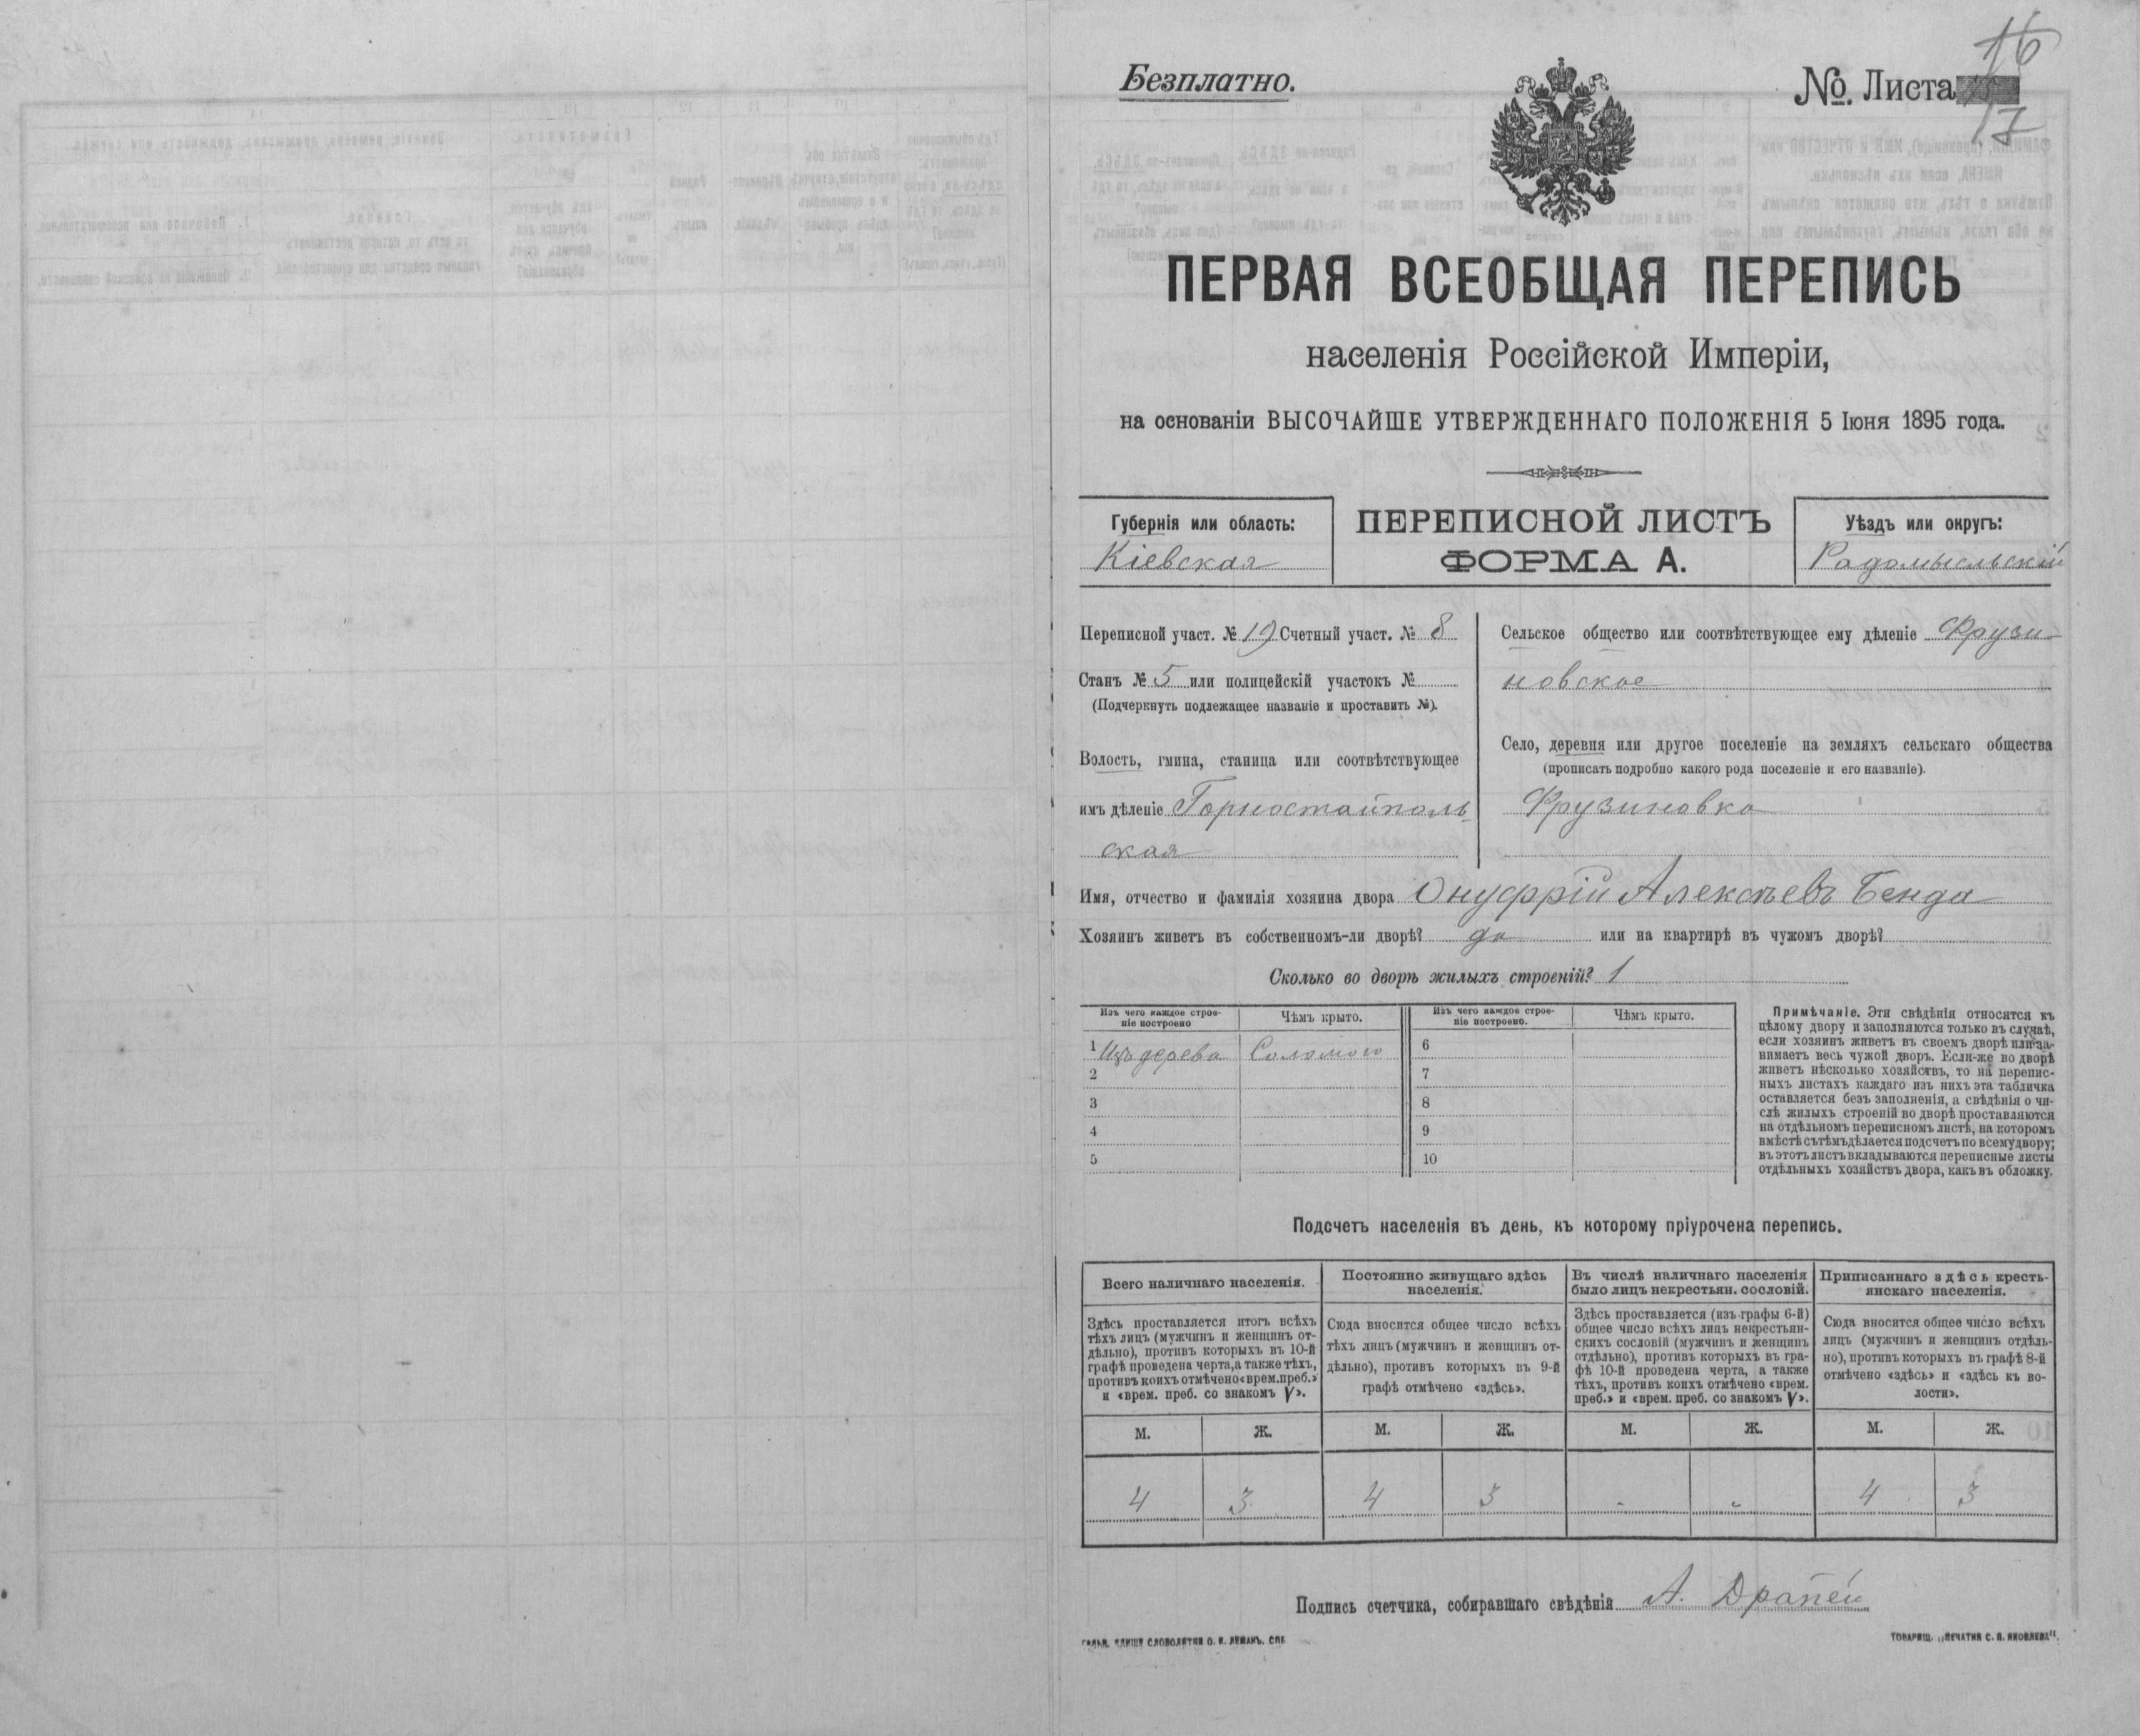 Безплатно.
№. Листа 16
17
ПЕРВАЯ ВСЕОБЩАЯ ПЕРЕПИСЬ
населенія Россійской Имперіи,
на основаніи ВЫСОЧАЙШЕ УТВЕРЖДЕННАГО ПОЛОЖЕНІЯ 5 Іюня 1895 года.
Губернія или область:
Кіевская
ПЕРЕПИСНОЙ ЛИСТЪ
ФОРМА А.
Уѣздъ или округъ:
Радомысльскій
Переписной участ. № 19 Счетный участ. № 8
Станъ № 5 или полицейскій участокъ №
(Подчеркнуть подлежащее названіе и проставить №).
Волость, гмина, станица или соотвѣтствующее
имъ дѣленіе Горностайполь-
ская
Сельское общество или соотвѣтствующее ему дѣленіе Фрузи-
новское
Село, деревня или другое поселеніе на земляхъ сельскаго общества
(прописать подробно какого рода поселеніе и его названіе).
Фрузиновка
Имя, отчество и фамилія хозяина двора Онуфрій Алексѣевъ Бенда
Хозяинъ живетъ въ собственномъ-ли дворѣ? да или на квартирѣ въ чужомъ дворѣ?
Сколько во дворѣ жилыхъ строеній? 1
Изъ чего каждое строе-
ніе построено
Чѣмъ крыто.
Изъ чего каждое строе-
ніе построено.
Чѣмъ крыто.
1 Изъ дерева Соломою 6
2 7
3 8
4 9
5 10
Примѣчаніе. Эти свѣдѣнія относятся къ
цѣлому двору и заполняются только въ случаѣ,
если хозяинъ живетъ въ своемъ дворѣ или за-
нимаетъ весь чужой дворъ. Если-же во дворѣ
живетъ нѣсколько хозяйствъ, то на перепис-
ныхъ листахъ каждаго изъ нихъ эта табличка
оставляется безъ заполненія, а свѣдѣнія о чи-
слѣ жилыхъ строеній во дворѣ проставляются
на отдѣльномъ переписномъ листѣ, на которомъ
вмѣстѣ съ тѣмъ дѣлается подсчетъ по всему двору;
въ этотъ листъ вкладываются переписные листы
отдѣльныхъ хозяйствъ двора, какъ въ обложку.
Подсчетъ населенія въ день, къ которому пріурочена перепись.
Всего наличнаго населенія.
Здѣсь проставляется итогъ всѣхъ
тѣхъ лицъ (мужчинъ и женщинъ от-
дѣльно), противъ которыхъ въ 10-й
графѣ проведена черта, а также тѣхъ,
противъ коихъ отмѣчено «врем. преб.»
и «врем. преб. со знакомъ V».
Постоянно живущаго здѣсь
населенія.
Сюда вносится общее число всѣхъ
тѣхъ лицъ (мужчинъ и женщинъ от-
дѣльно), противъ которыхъ въ 9-й
графѣ отмѣчено «здѣсь».
Въ числѣ наличнаго населенія
было лицъ некрестьян. сословій.
Здѣсь проставляется (изъ графы 6-й)
общее число всѣхъ лицъ некрестьян-
скихъ сословій (мужчинъ и женщинъ
отдѣльно), противъ которыхъ въ гра-
фѣ 10-й проведена черта, а также
тѣхъ, противъ коихъ отмѣчено «врем.
преб.» и «врем. преб. со знакомъ V».
Приписаннаго здѣсь кресть-
янскаго населенія.
Сюда вносится общее число всѣхъ
лицъ (мужчинъ и женщинъ отдѣль-
но), противъ которыхъ въ графѣ 8-й
отмѣчено «здѣсь» и «здѣсь къ во-
лости».
М. Ж. М. Ж. М. Ж. М. Ж.
4 3 4 3 - " 4 3
Подпись счетчика, собиравшаго свѣдѣнія А. Драпей
СЛОВОЛИТНЯ О. И. ЛЕМАНЪ. СПБ
ТОВАРИЩ. „ПЕЧАТНЯ С. П. ЯКОВЛЕВА".